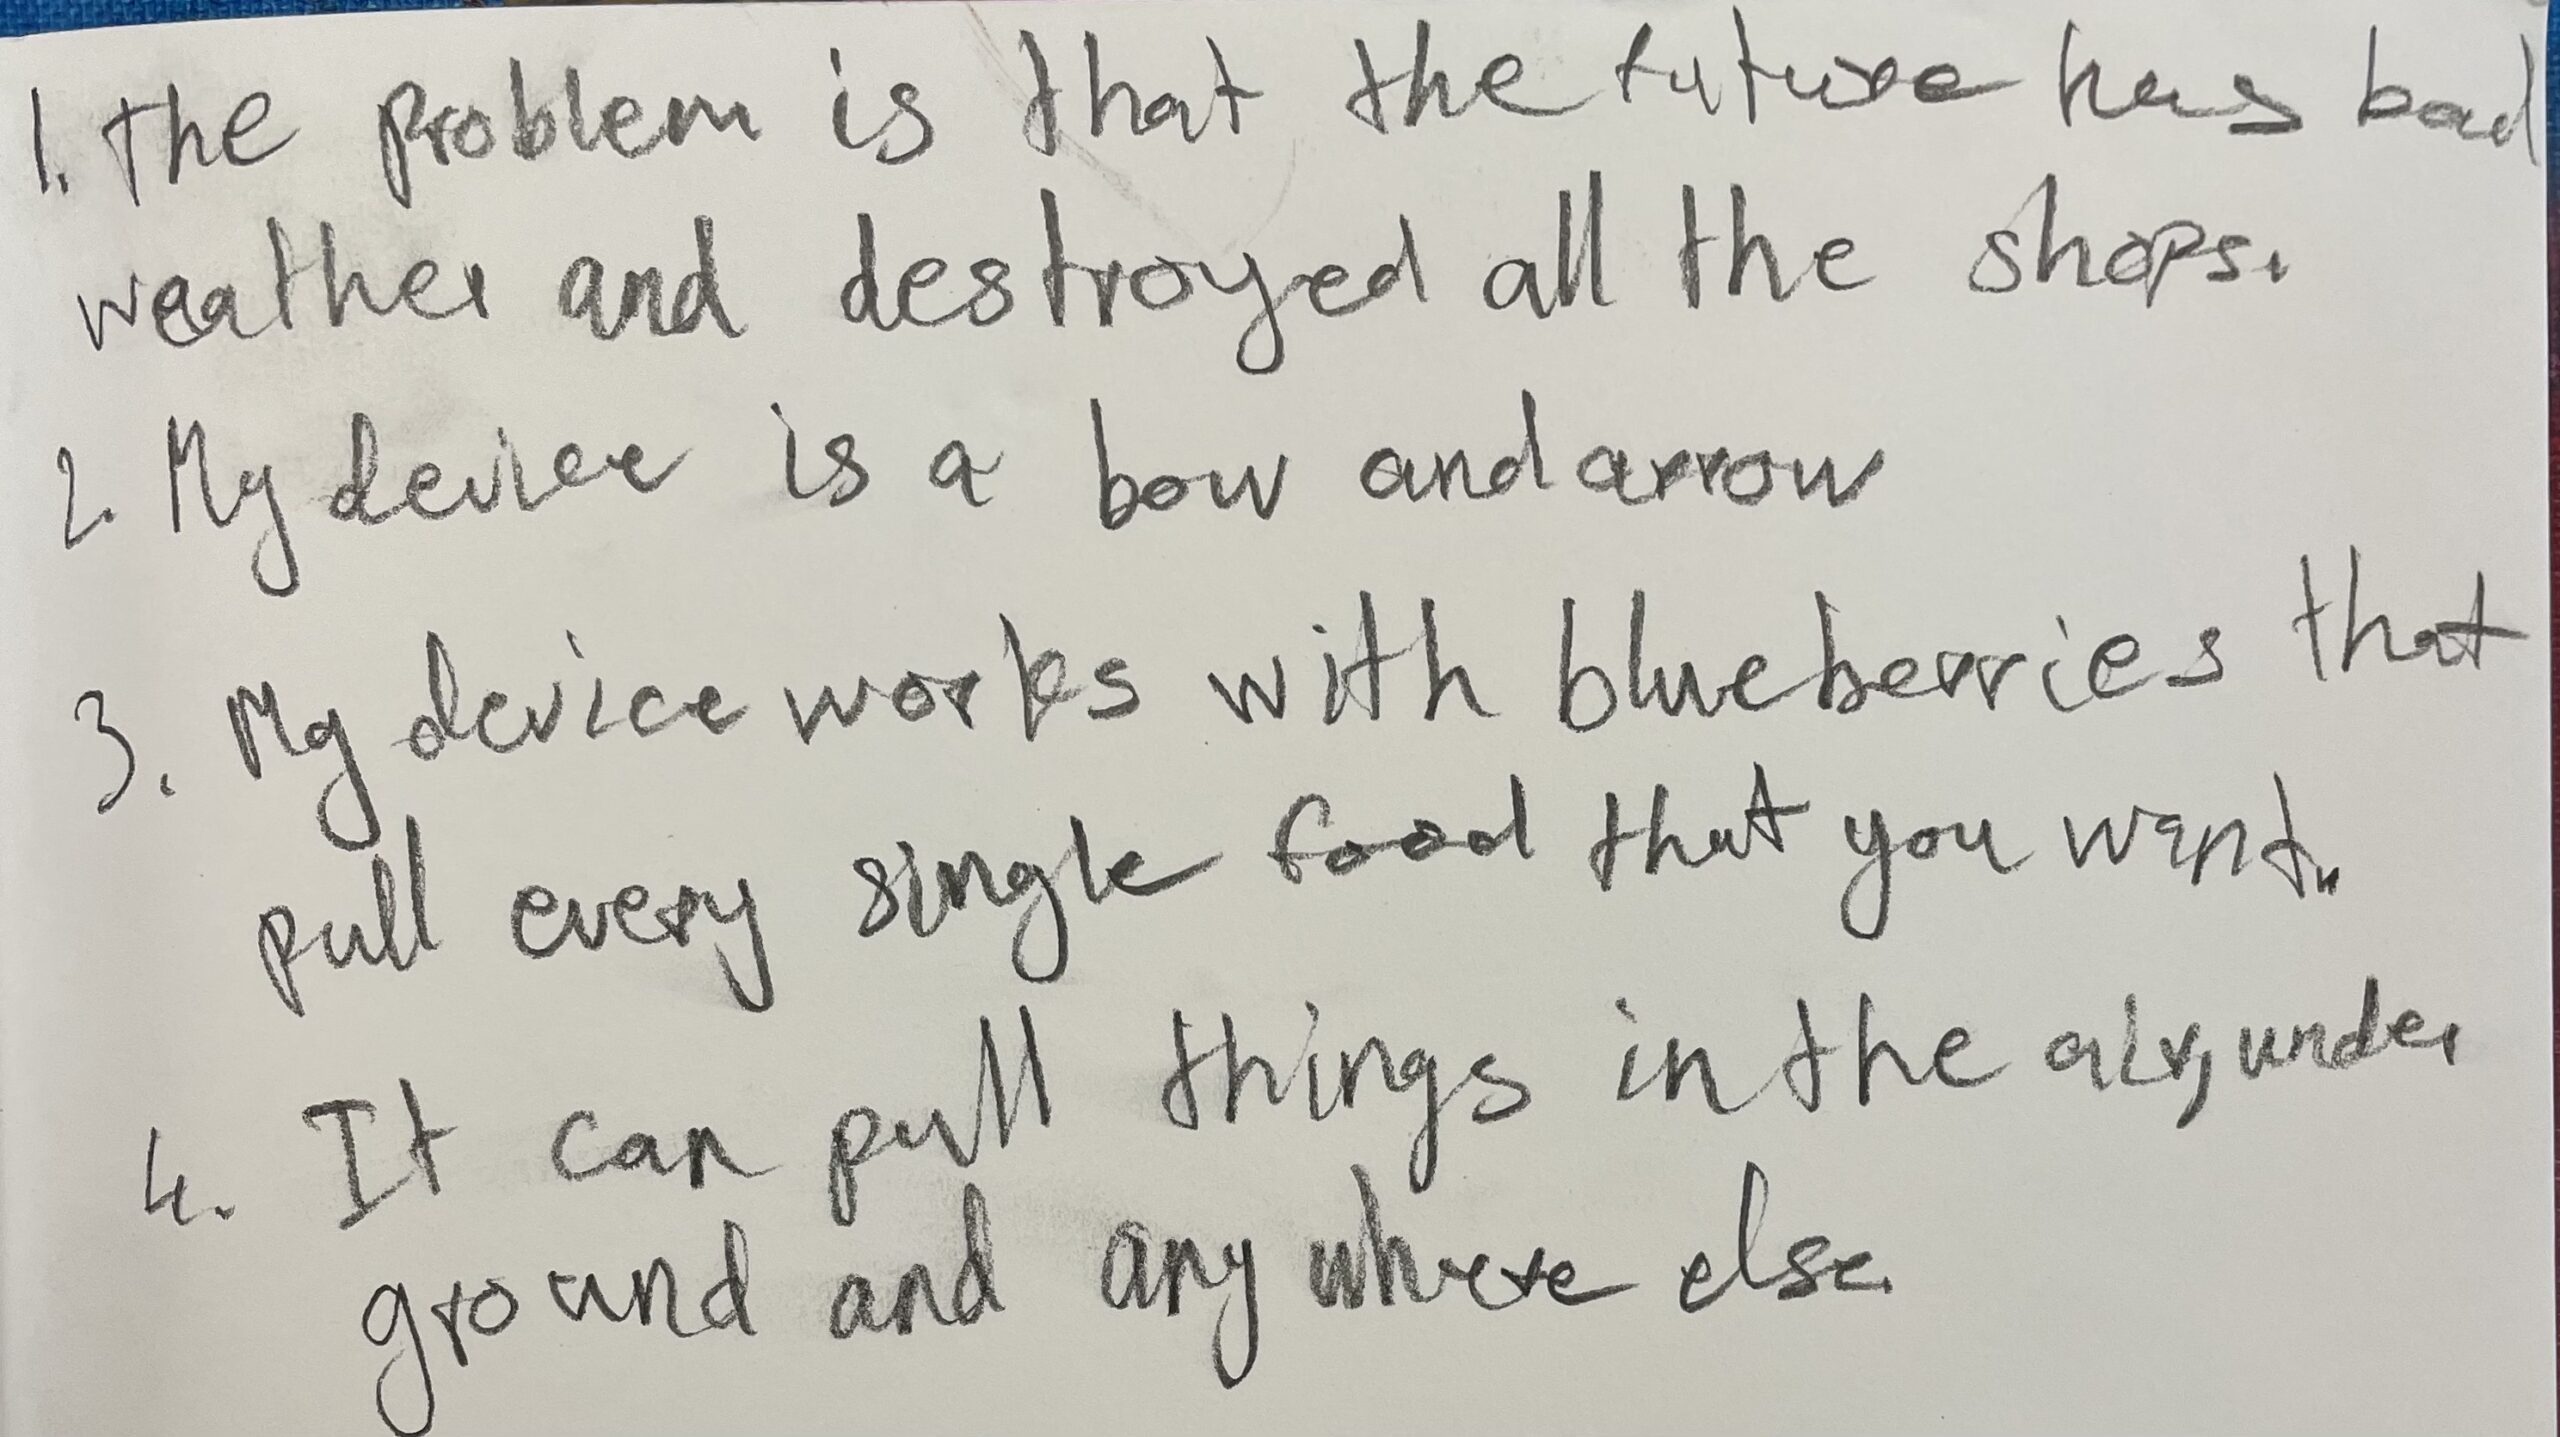 1. the problem is that the future has bad
weather and destroyed all the shops.
2. My device is a bow and arrow
3. My device works with blueberries that
pull every single food that you want.
4. It can pull things in the air, under
ground and any where else.